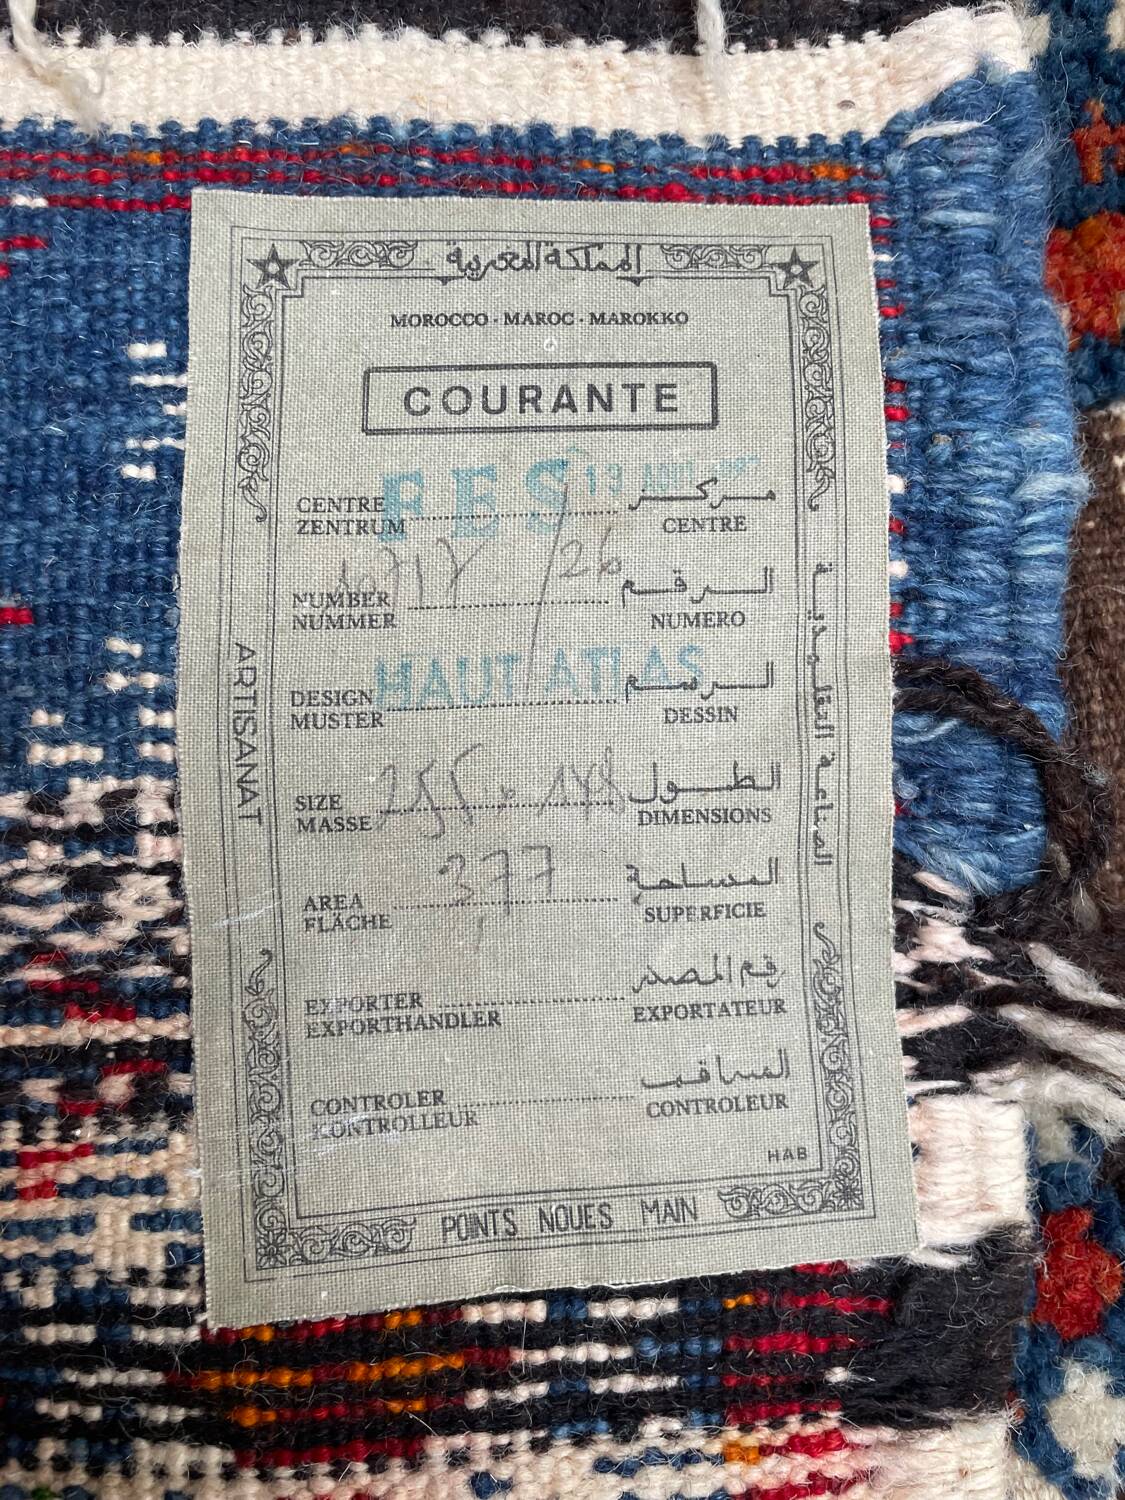 المملكة المغربية
MOROCCO - MAROC - MAROKKO
COURANTE
FES 13
CENTRE مركز
ZENTRUM CENTRE
/26
NUMBER الرقم
NUMMER NUMERO
HAUT ATLAS
DESIGN الرسم
MUSTER DESSIN
SIZE 255 الطول
MASSE DIMENSIONS
377
AREA المساحة
FLÄCHE SUPERFICIE
EXPORTER رقم المصدر
EXPORTHANDLER EXPORTATEUR
CONTROLER المراقب
KONTROLLEUR CONTROLEUR
HAB
POINTS NOUES MAIN
ARTISANAT
الصناعة التقليدية